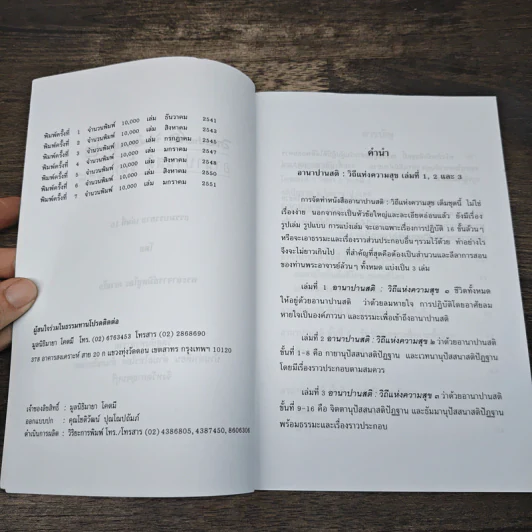 พิมพ์ครั้งที่ 1 จำนวนพิมพ์ 10,000 เล่ม ธันวาคม 2541
พิมพ์ครั้งที่ 2 จำนวนพิมพ์ 10,000 เล่ม สิงหาคม 2545
พิมพ์ครั้งที่ 3 จำนวนพิมพ์ 10,000 เล่ม กรกฎาคม 2546
พิมพ์ครั้งที่ 4 จำนวนพิมพ์ 10,000 เล่ม มกราคม 2547
พิมพ์ครั้งที่ 5 จำนวนพิมพ์ 10,000 เล่ม สิงหาคม 2548
พิมพ์ครั้งที่ 6 จำนวนพิมพ์ 10,000 เล่ม สิงหาคม 2550
พิมพ์ครั้งที่ 7 จำนวนพิมพ์ 10,000 เล่ม มกราคม 2551
ผู้สนใจร่วมในธรรมทานโปรดติดต่อ
มูลนิธิมายา โคตมี โทร. (02) 6763453 โทรสาร (02) 2868690
378 อาคารสงเคราะห์ สาย 20 ก แขวงทุ่งวัดดอน เขตสาทร กรุงเทพฯ 10120
เจ้าของลิขสิทธิ์ : มูลนิธิมายา โคตมี
ออกแบบปก : คุณโชติวัฒน์ ปุณโณปถัมภ์
ดำเนินการผลิต : วิริยะการพิมพ์ โทร./โทรสาร (02) 4386805, 4387450, 8606306
คำนำ
อานาปานสติ : วิถีแห่งความสุข เล่มที่ 1, 2 และ 3
การจัดทำหนังสืออานาปานสติ : วิถีแห่งความสุข เต็มชุดนี้ ไม่ใช่
เรื่องง่าย นอกจากจะเป็นหัวข้อใหญ่และละเอียดอ่อนแล้ว ยังมีเรื่อง
รูปเล่ม รูปแบบ การแบ่งเล่ม จะเอาเฉพาะเรื่องการปฏิบัติ 16 ขั้นล้วนๆ
หรือจะเอาธรรมะและเรื่องราวส่วนประกอบอื่นๆรวมไว้ด้วย ทำอย่างไร
จึงจะไม่ยาวเกินไป ที่สำคัญที่สุดคือต้องเป็นสำนวนและลีลาการสอน
ของท่านพระอาจารย์ล้วนๆ ทั้งหมด แบ่งเป็น 3 เล่ม
เล่มที่ 1 อานาปานสติ : วิถีแห่งความสุข ๑ ชีวิตทั้งหมด
ให้อยู่ด้วยอานาปานสติ ว่าด้วยลมหายใจ การปฏิบัติโดยอาศัยลม
หายใจเป็นองค์ภาวนา และธรรมะเพื่อเข้าถึงอานาปานสติ
เล่มที่ 2 อานาปานสติ : วิถีแห่งความสุข ๒ ว่าด้วยอานาปานสติ
ขั้นที่ 1-8 คือ กายานุปัสสนาสติปัฏฐาน และเวทนานุปัสสนาสติปัฏฐาน
โดยมีเรื่องราวประกอบตามสมควร
เล่มที่ 3 อานาปานสติ : วิถีแห่งความสุข ๓ ว่าด้วยอานาปานสติ
ขั้นที่ 9-16 คือ จิตตานุปัสสนาสติปัฏฐาน และธัมมานุปัสสนาสติปัฏฐาน
พร้อมธรรมะและเรื่องราวประกอบ